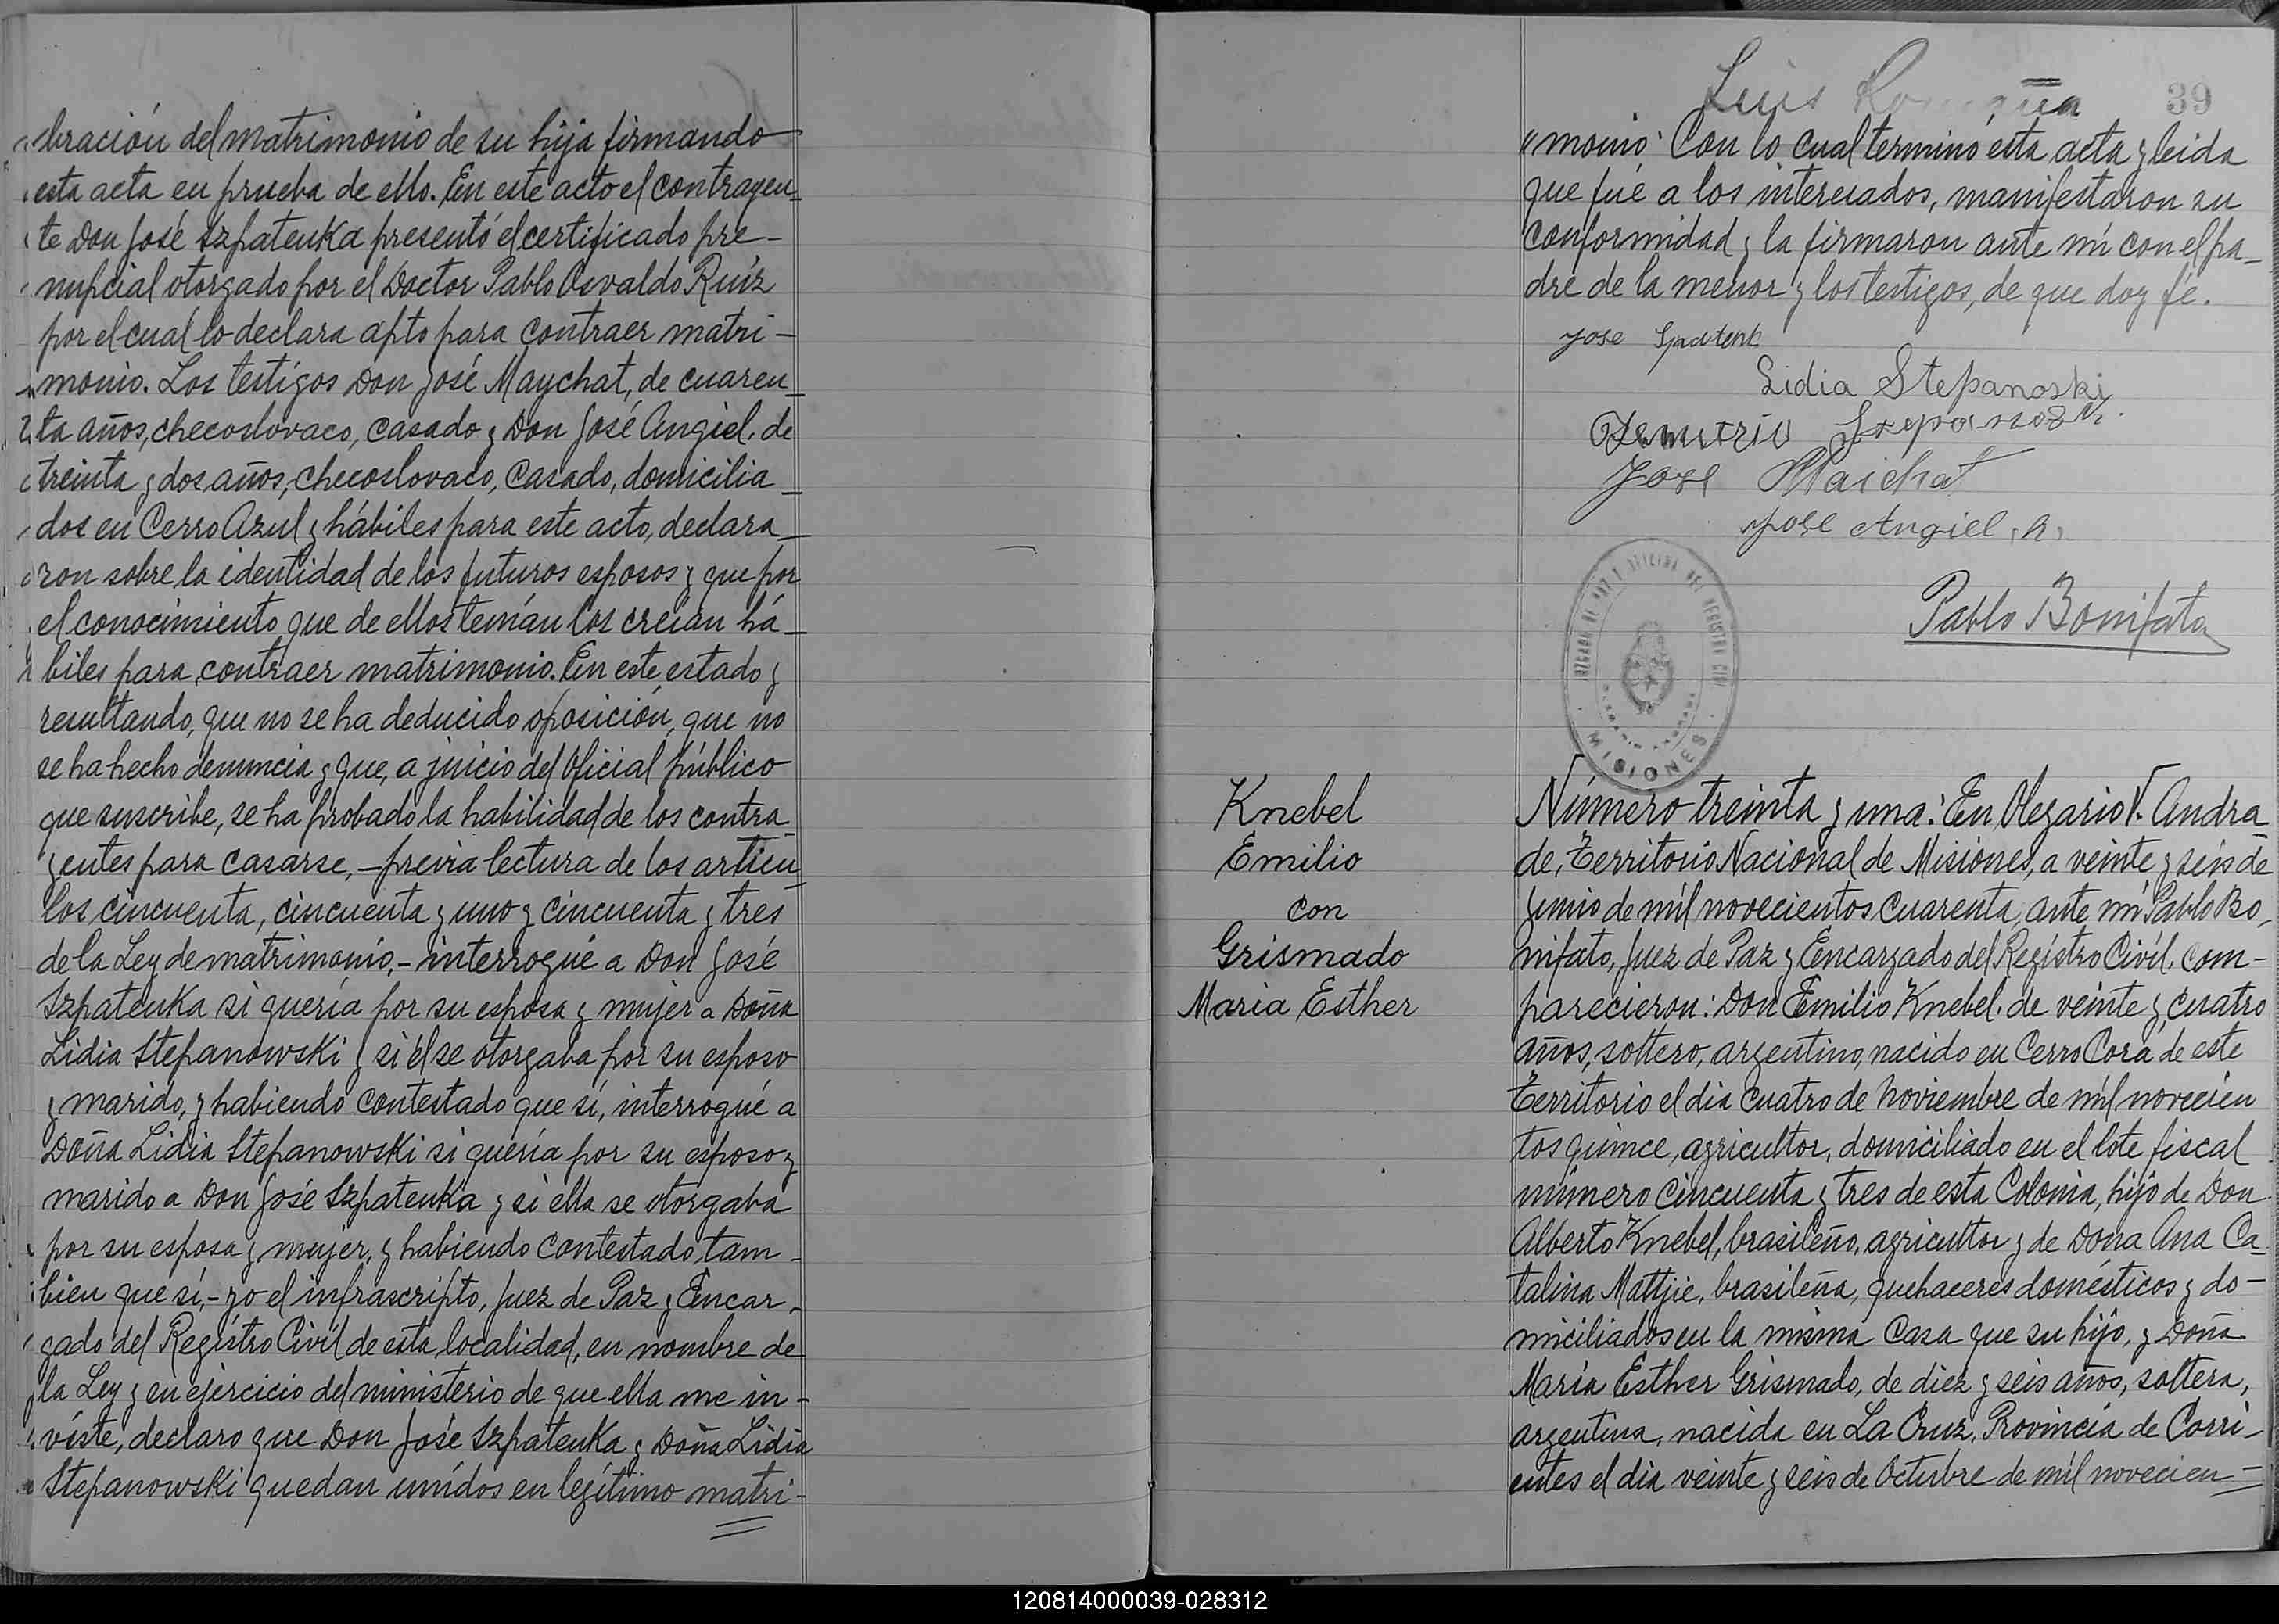 bración del matrimonio de su hija firmando
esta acta en prueba de ello. En este acto el contrayen_
te Don José Szpatenka presentó el certificado pre-
nupcial otorgado por el Doctor Pablo Osvaldo Ruíz
por el cual lo declara apto para contraer matri-
monio. Los testigos Don José Maychat, de cuaren_
ta años, checoslovaco, casado y Don José Angiel, de
treinta y dos años, checoslovaco, casado, domicilia_
dos en Cerro Azul y hábiles para este acto, declara_
ron sobre la identidad de los futuros esposos y que por
el conocimiento que de ellos tenían los creían há_
biles para contraer matrimonio. En este estado y
resultando, que no se ha deducido oposición, que no
se ha hecho denuncia y que, a juicio del Oficial público
que suscribe, se ha probado la habilidad de los contra_
yentes para casarse, - previa lectura de los artícu_
los cincuenta, cincuenta y uno y cincuenta y tres
de la Ley de matrimonio, - interrogué a Don José
Szpatenka si quería por su esposa y mujer a Doña
Lidia Stepanowski y si él se otorgaba por su esposo
y marido, y habiendo contestado que sí, interrogué a
Doña Lidia Stepanowski si quería por su esposo y
marido a Don José Szpatenka y si ella se otorgaba
por su esposa y mujer, y habiendo contestado tam-
bien que sí, - yo el infrascripto, Juez de Paz y Encar-
gado del Registro Civil de esta localidad, en nombre de
la Ley y en ejercicio del ministerio de que ella me in-
viste, declaro que Don José Szpatenka y Doña Lidia
Stepanowski quedan unidos en legítimo matri-
Luis
39
"monio. Con lo cual terminó esta acta y leida
que fué a los interesados, manifestaron su
conformidad y la firmaron ante mí con el pa_
dre de la menor y los testigos, de que doy fé.
Jose
Lidia Stepanoski
Jose Maichat
Jose Angiel. h.
Pablo Bonifato
MISIONES
Knebel
Emilio
con
Grismado
Maria Esther
Número treinta y una: En Olegario V. Andra_
de, Territorio Nacional de Misiones, a veinte y seis de
Junio de mil novecientos cuarenta, ante mí Pablo Bo_
nifato, Juez de Paz y Encargado del Registro Civil, com-
parecieron: Don Emilio Knebel, de veinte y cuatro
años, soltero, argentino, nacido en Cerro Corá de este
Territorio el dia cuatro de Noviembre de mil novecien
tos quince, agricultor, domiciliado en el lote fiscal
número cincuenta y tres de esta Colonia, hijo de Don
Alberto Knebel, brasileño, agricultor y de Doña Ana Ca_
talina Mattjie, brasileña, quehaceres domésticos y do-
miciliados en la misma casa que su hijo, y Doña
María Esther Grismado, de diez y seis años, soltera,
argentina, nacida en La Cruz, Provincia de Corri-
entes el dia veinte y seis de Octubre de mil novecien-
120814000039-028312